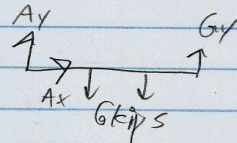 Ay Gy
Ax
6kips